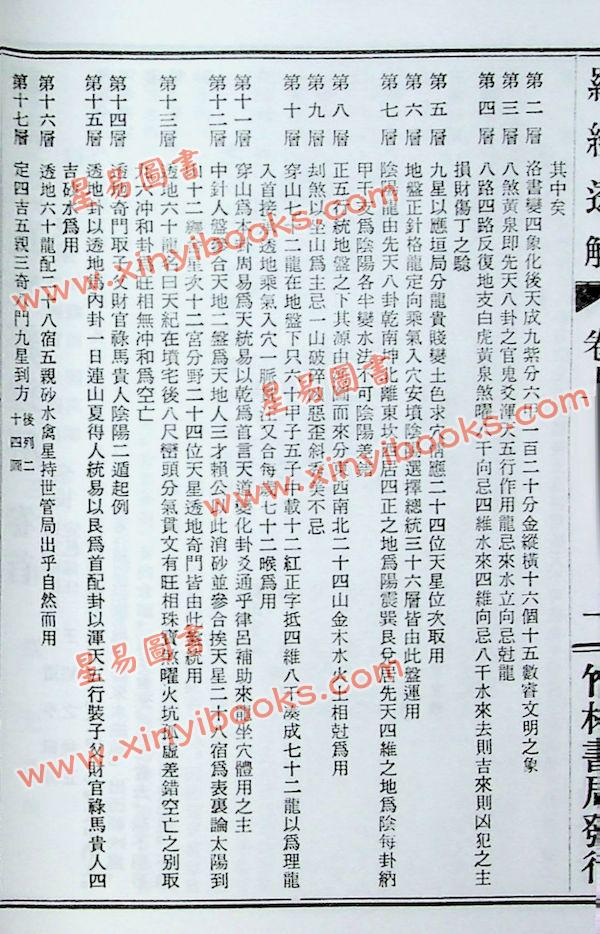 羅經透解
卷
二
竹林書局發行
其中矣
第二層 洛書變四象化後天成九紫分六甲一百二十分金縱橫十六個十五數睿文明之象
第三層 八煞黃泉即先天八卦之官鬼爻渾天五行作用龍忌來水立向忌尅龍
第四層 八路四路反復地支白虎黃泉煞曜八干向忌四維水來四維向忌八干水來去則吉來則凶犯之主
損財傷丁之驗
第五層 九星以應垣局分龍貴賤變土色求穴情應二十四位天星位次取用
第六層 地盤正針格龍定向乘氣入穴安墳陰陽選擇總統三十六層皆由此盤運用
第七層 陰陽龍由先天八卦乾南坤北離東坎西居四正之地為陽震巽艮兌居先天四維之地為陰每卦納
甲干支為陰陽各半變水法不可陰陽差錯
第八層 正五行統地盤之下其源由河圖而來分東西南北二十四山金木水火土相尅為用
第九層 刦煞以坐山為主忌一山破碎凶惡歪斜秀美不忌
第十層 穿山七十二龍在地盤下只六十甲子五子中載十二紅正字抵四維八干湊成七十二龍以為理龍
入首接透地乘氣入穴一脈貫注又合每年七十二候為用
第十一層 穿山為本卦周易為天統易以乾為首言天道變化卦爻通乎律呂補助來龍坐穴體用之主
第十二層 中針人盤參合天地二盤為天地人三才賴公以此消砂並參合挨天星二十八宿為表裏論太陽到
山十二鄉星次十二宮分野二十四位天星透地奇門皆由此盤統用
第十三層 透地六十龍名曰天紀在墳宅後八尺巒頭分氣貫文有旺相珠寶煞曜火坑孤虛差錯空亡之別取
六六冲和卦得旺相無冲和為空亡
第十四層 透地奇門取子父財官祿馬貴人陰陽二遁起例
第十五層 透地卦以透地為內卦一曰連山夏得人統易以艮為首配卦以渾天五行裝子父財官祿馬貴人四
吉砂水為用
第十六層 透地六十龍配二十八宿五親砂水禽星持世管局出乎自然而用
第十七層 定四吉五親三奇八門九星到方 後列二十四圖
星易圖書
www.xinyibooks.com
星易圖書
www.xinyibooks.com
星易圖書
www.xinyibooks.com